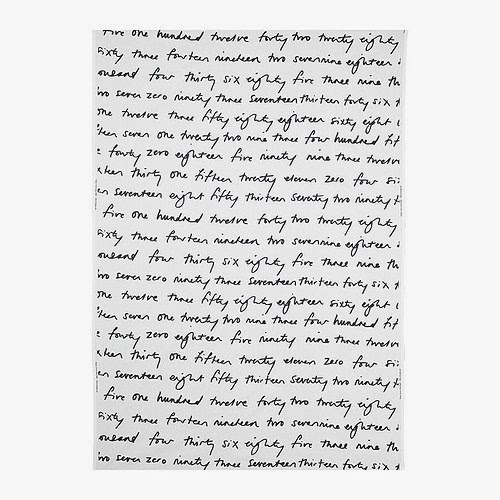 five one hundred twelve forty two twenty eighty
sixty three fourteen nineteen two seven nine eighteen
ousand four thirty six eighty five three nine th
wo seven zero ninety three seventeen thirteen forty six t
one twelve three fifty eighty eighteen sixty eight
teen seven one twenty two nine three four hundred fif
e forty zero eighteen five ninety nine three twelve
teen thirty one fifteen twenty eleven zero four six
en seventeen eight fifty thirteen seventy two ninety
five one hundred twelve forty two twenty eighty
sixty three fourteen nineteen two seven nine eighteen
ousand four thirty six eighty five three nine th
wo seven zero ninety three seventeen thirteen forty six t
one twelve three fifty eighty eighteen sixty eight
teen seven one twenty two nine three four hundred fif
e forty zero eighteen five ninety nine three twelve
teen thirty one fifteen twenty eleven zero four six
en seventeen eight fifty thirteen seventy two ninety
five one hundred twelve forty two twenty eighty
sixty three fourteen nineteen two seven nine eighteen
ousand four thirty six eighty five three nine th
wo seven zero ninety three seventeen thirteen forty six t